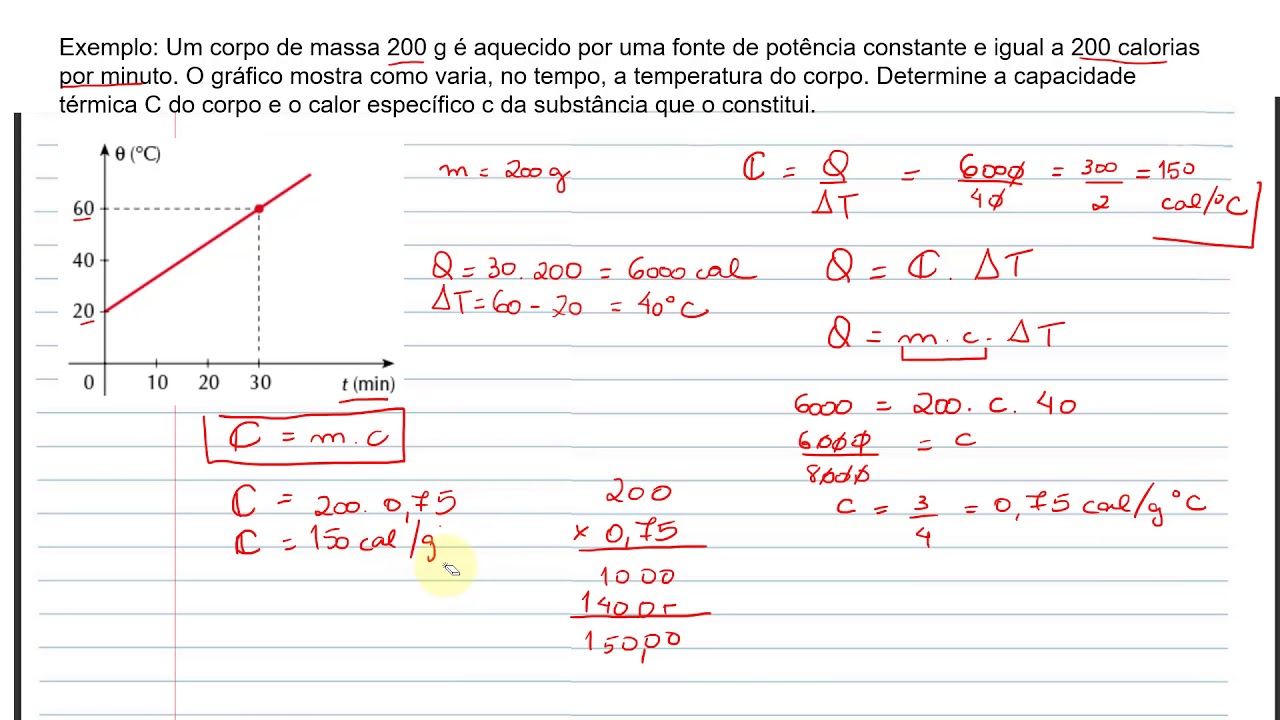 Exemplo: Um corpo de massa 200 g é aquecido por uma fonte de potência constante e igual a 200 calorias
por minuto. O gráfico mostra como varia, no tempo, a temperatura do corpo. Determine a capacidade
térmica C do corpo e o calor específico c da substância que o constitui.
θ (°C)
60
40
20
0 10 20 30 t (min)
m = 200g
Q = 30.200 = 6000 cal
ΔT = 60 - 20 = 40°C
C = Q/ΔT = 6000/40 = 300/2 = 150
cal/°C
Q = C. ΔT
Q = m.c. ΔT
6000 = 200. c. 40
6000/8000 = c
c = 3/4 = 0,75 cal/g°C
C = m.c
C = 200. 0,75
C = 150 cal/g
200
x 0,75
1000
1400
150,00